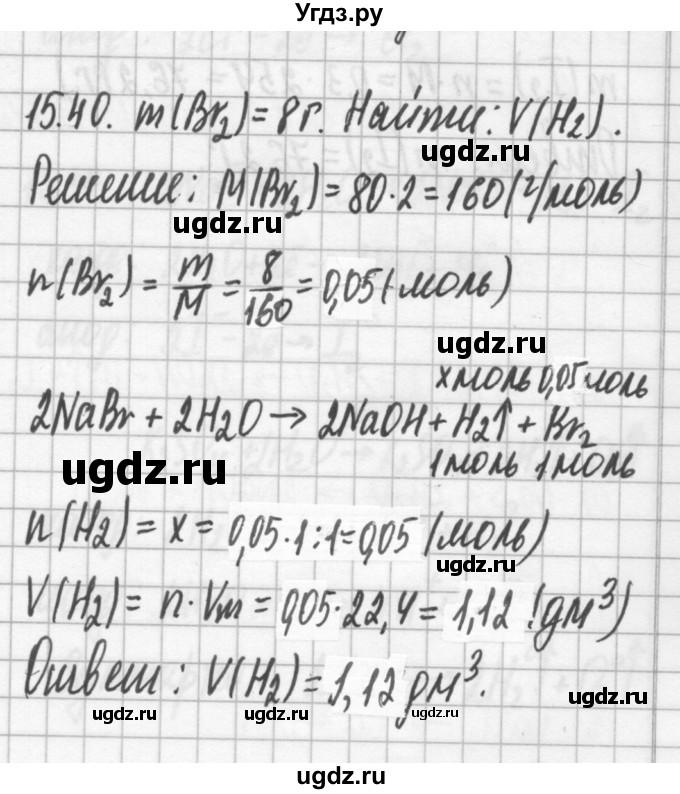 Угдз.ру
15.40. m(Br₂)=8г. Найти: V(H₂).
ugdz.ru
Решение: M(Br₂)=80·2=160(г/моль)
ugdz.ru ugdz.ru
n(Br₂)=m/M=8/160=0,05(моль)
x моль 0,05 моль
2NaBr+2H₂O→2NaOH+H₂↑+Br₂
ugdz.ru ugdz.ru
1 моль 1 моль
n(H₂)=x=0,05·1:1=0,05(моль)
ugdz.ru
V(H₂)=n·Vm=0,05·22,4=1,12(дм³)
Ответ: V(H₂)=1,12дм³.
ugdz.ru ugdz.ru ugdz.ru ugdz.ru
ugdz.ru